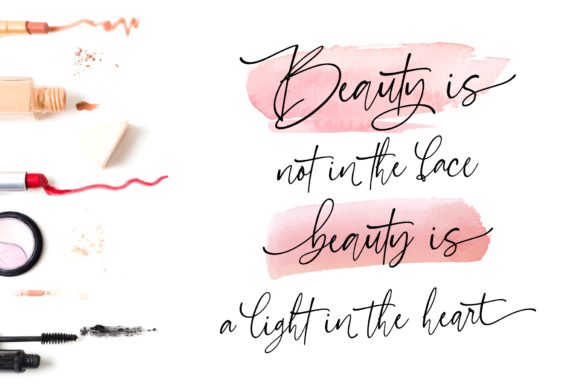 Beauty is
not in the face
beauty is
a light in the heart